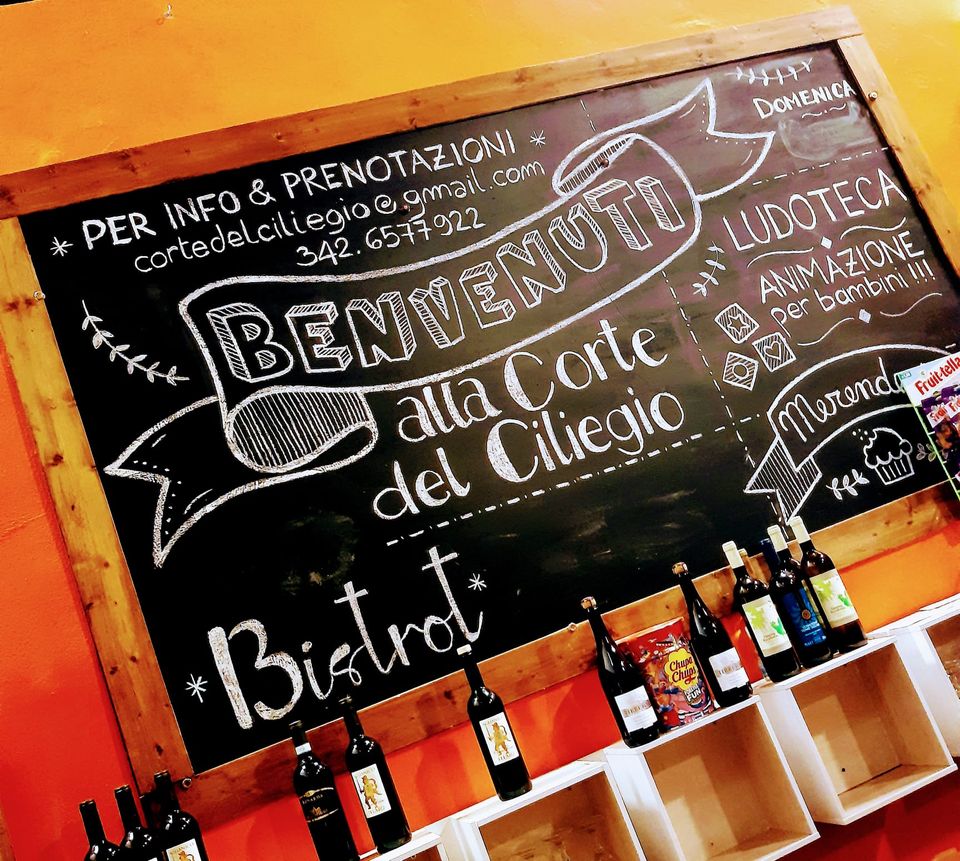 PER INFO & PRENOTAZIONI
cortedelciliegio@gmail.com
342.6577922
BENVENUTI
alla Corte
del Ciliegio
Bistrot
DOMENICA
LUDOTECA
ANIMAZIONE
per bambini !!!
Merenda
Fruit-tella
Chupa
Chups
FUN